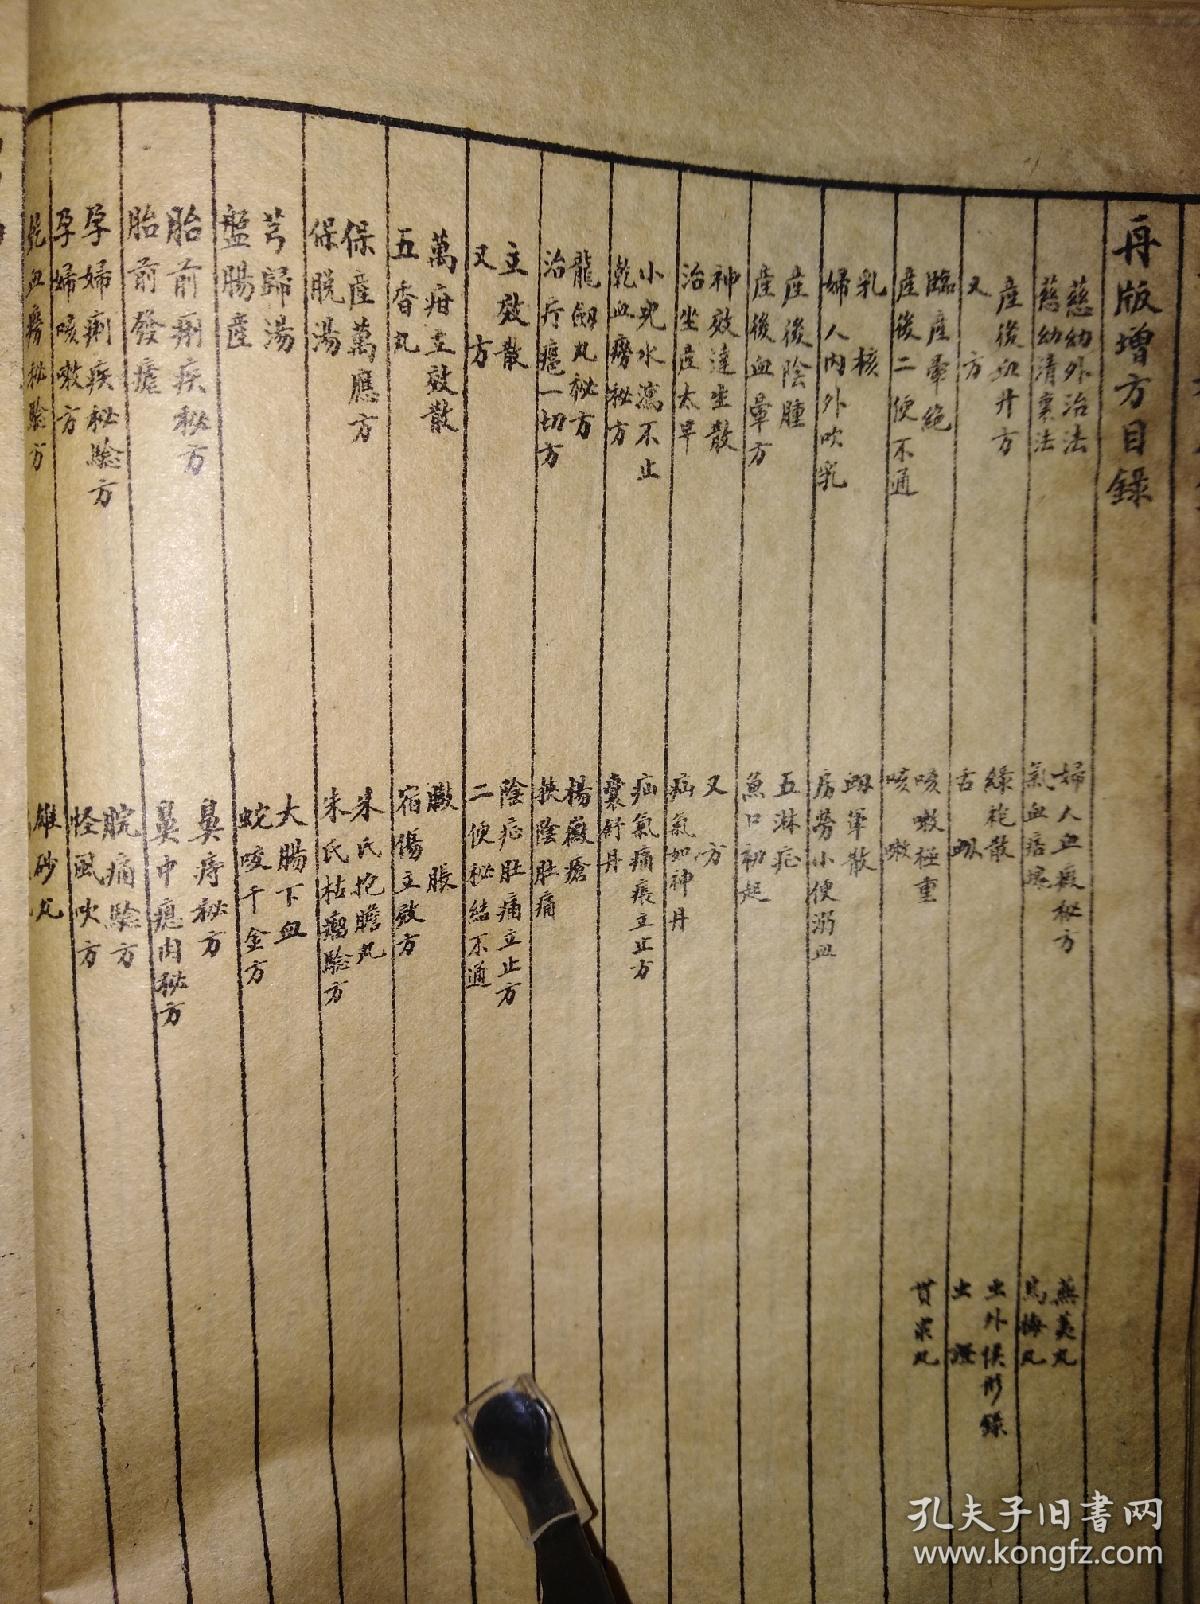 再版增方目錄
慈幼外治法
慈幼清裏法
產後血升方
又方
臨產暈絕
產後二便不通
乳核
婦人內外吹乳
產後陰腫
產後血暈方
神效達生散
治坐產太早
小兒水瀉不止
乾血癆秘方
龍剑丸秘方
治疔瘡一切方
立效散
又方
萬疳立效散
五香丸
保產萬應方
保脫湯
芎歸湯
盤腸產
胎前痢疾秘方
胎前發瘧
孕婦痢疾秘驗方
孕婦咳嗽方
乾血癆秘驗方
婦人血癥秘方
氣血痞塊
綠袍散
舌衄
咳嗽極重
咳嗽
衄軍散
房勞小便溺血
五淋症
魚口初起
又方
疝氣如神丹
疝氣痛瘊立止方
囊舒丹
楊癥瘡
挾陰肚痛
陰症肚痛立止方
二便秘結不通
臌脹
宿傷立效方
朱氏抱瞻丸
朱氏枯瘤驗方
大腸下血
蛇咬千金方
鼻痔秘方
鼻中瘜肉秘方
脘痛驗方
怪風吹方
雄砂丸
蕪荑丸
烏梅丸
虫外候形錄
虫證
貫衆丸
孔夫子旧書网
www.kongfz.com